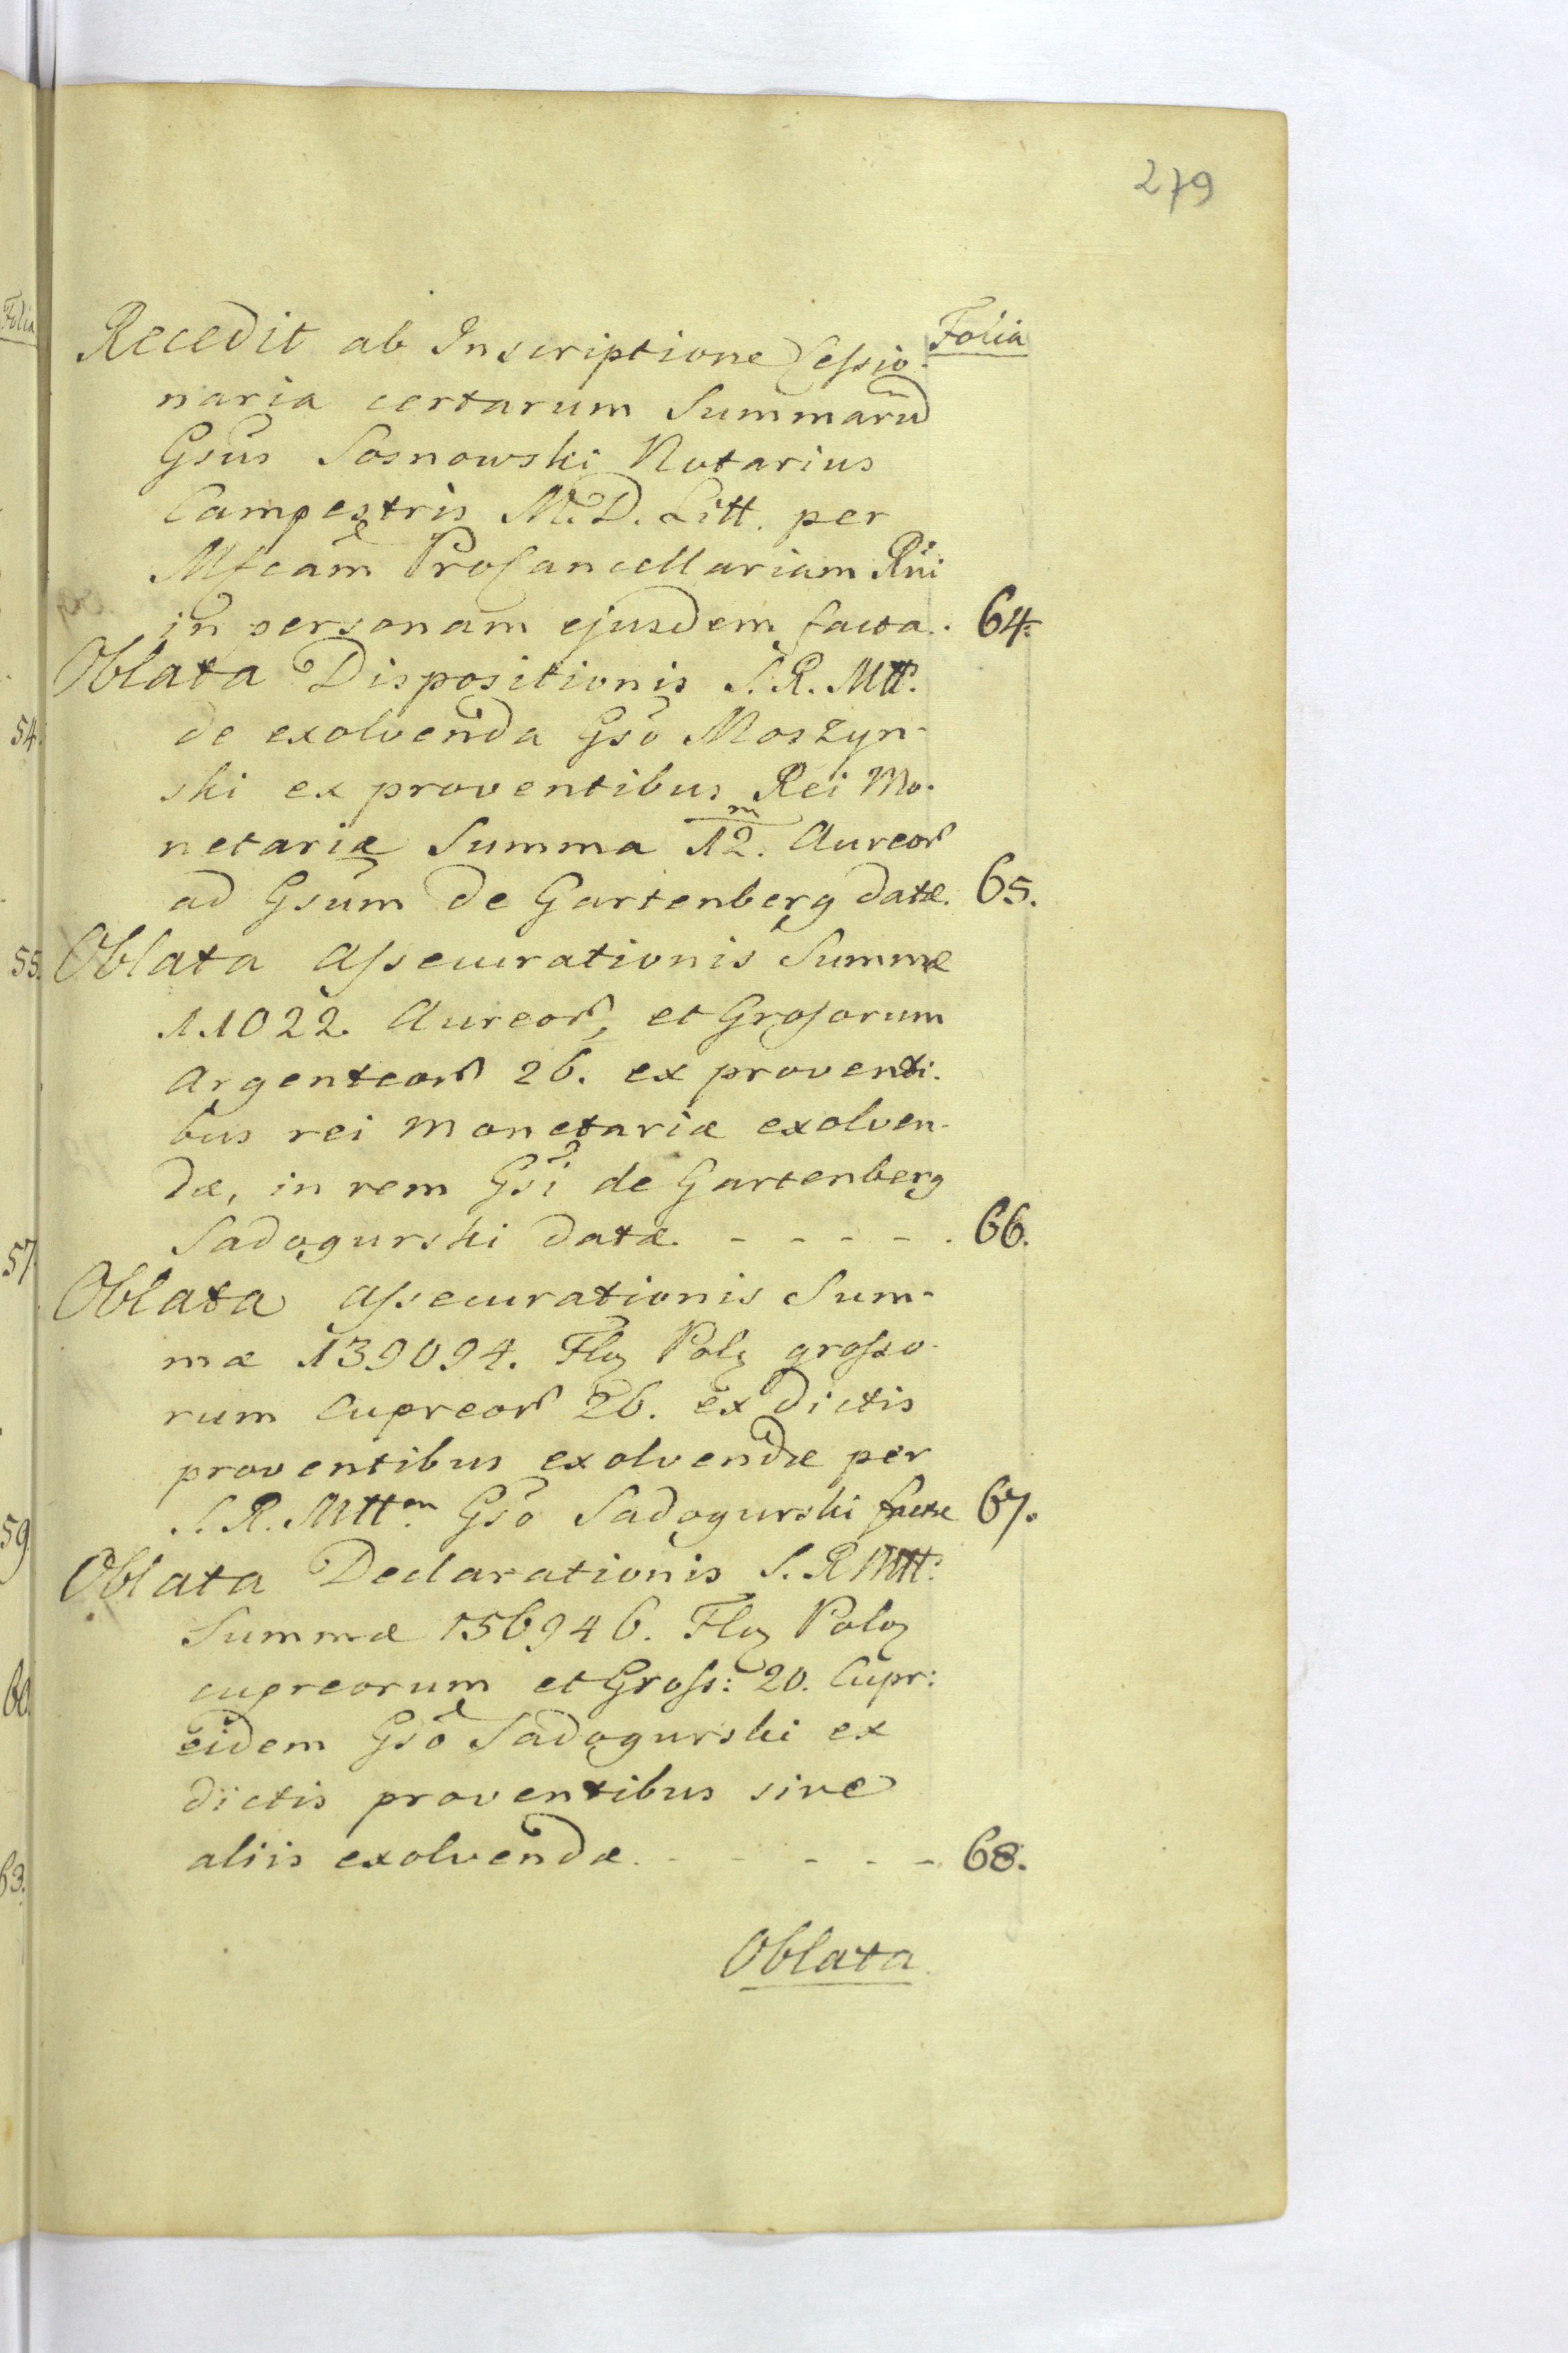 279
Folia
Recedit ab Inscriptione Cessio-
naria certarum Summarū
Gsūs Sosnowski Notarius
Campestris M. D. Litt. per
Mfcam ProCancellariam Rni
in personam ejusdem facta. 64.
Oblata Dispositionis S. R. Mtt:
de exolvenda Gsō Moszyn-
ski ex proventibus Rei Mo-
netariæ Summa 12.m Aureor
ad Gsūm de Gartenberg datæ. 65.
Oblata Assecurationis Summæ
11022. Aureor, et Grossorum
Argenteor 26. ex proventi-
bus rei Monetariæ exolven-
dæ, in rem Gsi de Gartenberg
Sadogurski datæ. - - - - - 66.
Oblata Assecurationis Sum-
mæ 139094. Flo Pol grosso-
rum Cupreor 26. ex dictis
proventibus exolvendæ per
S. R. Mttem Gsō Sadogurski factæ 67.
Oblata Declarationis S. R Mtt:
Summæ 156946. Flo Polo
cupreorum et Gross: 20. Cupr:
eidem Gsō Sadogurski ex
dictis proventibus sive
aliis exolvendæ. - - - - - 68.
Oblata
Folia
54.
55.
57.
59.
60.
63.